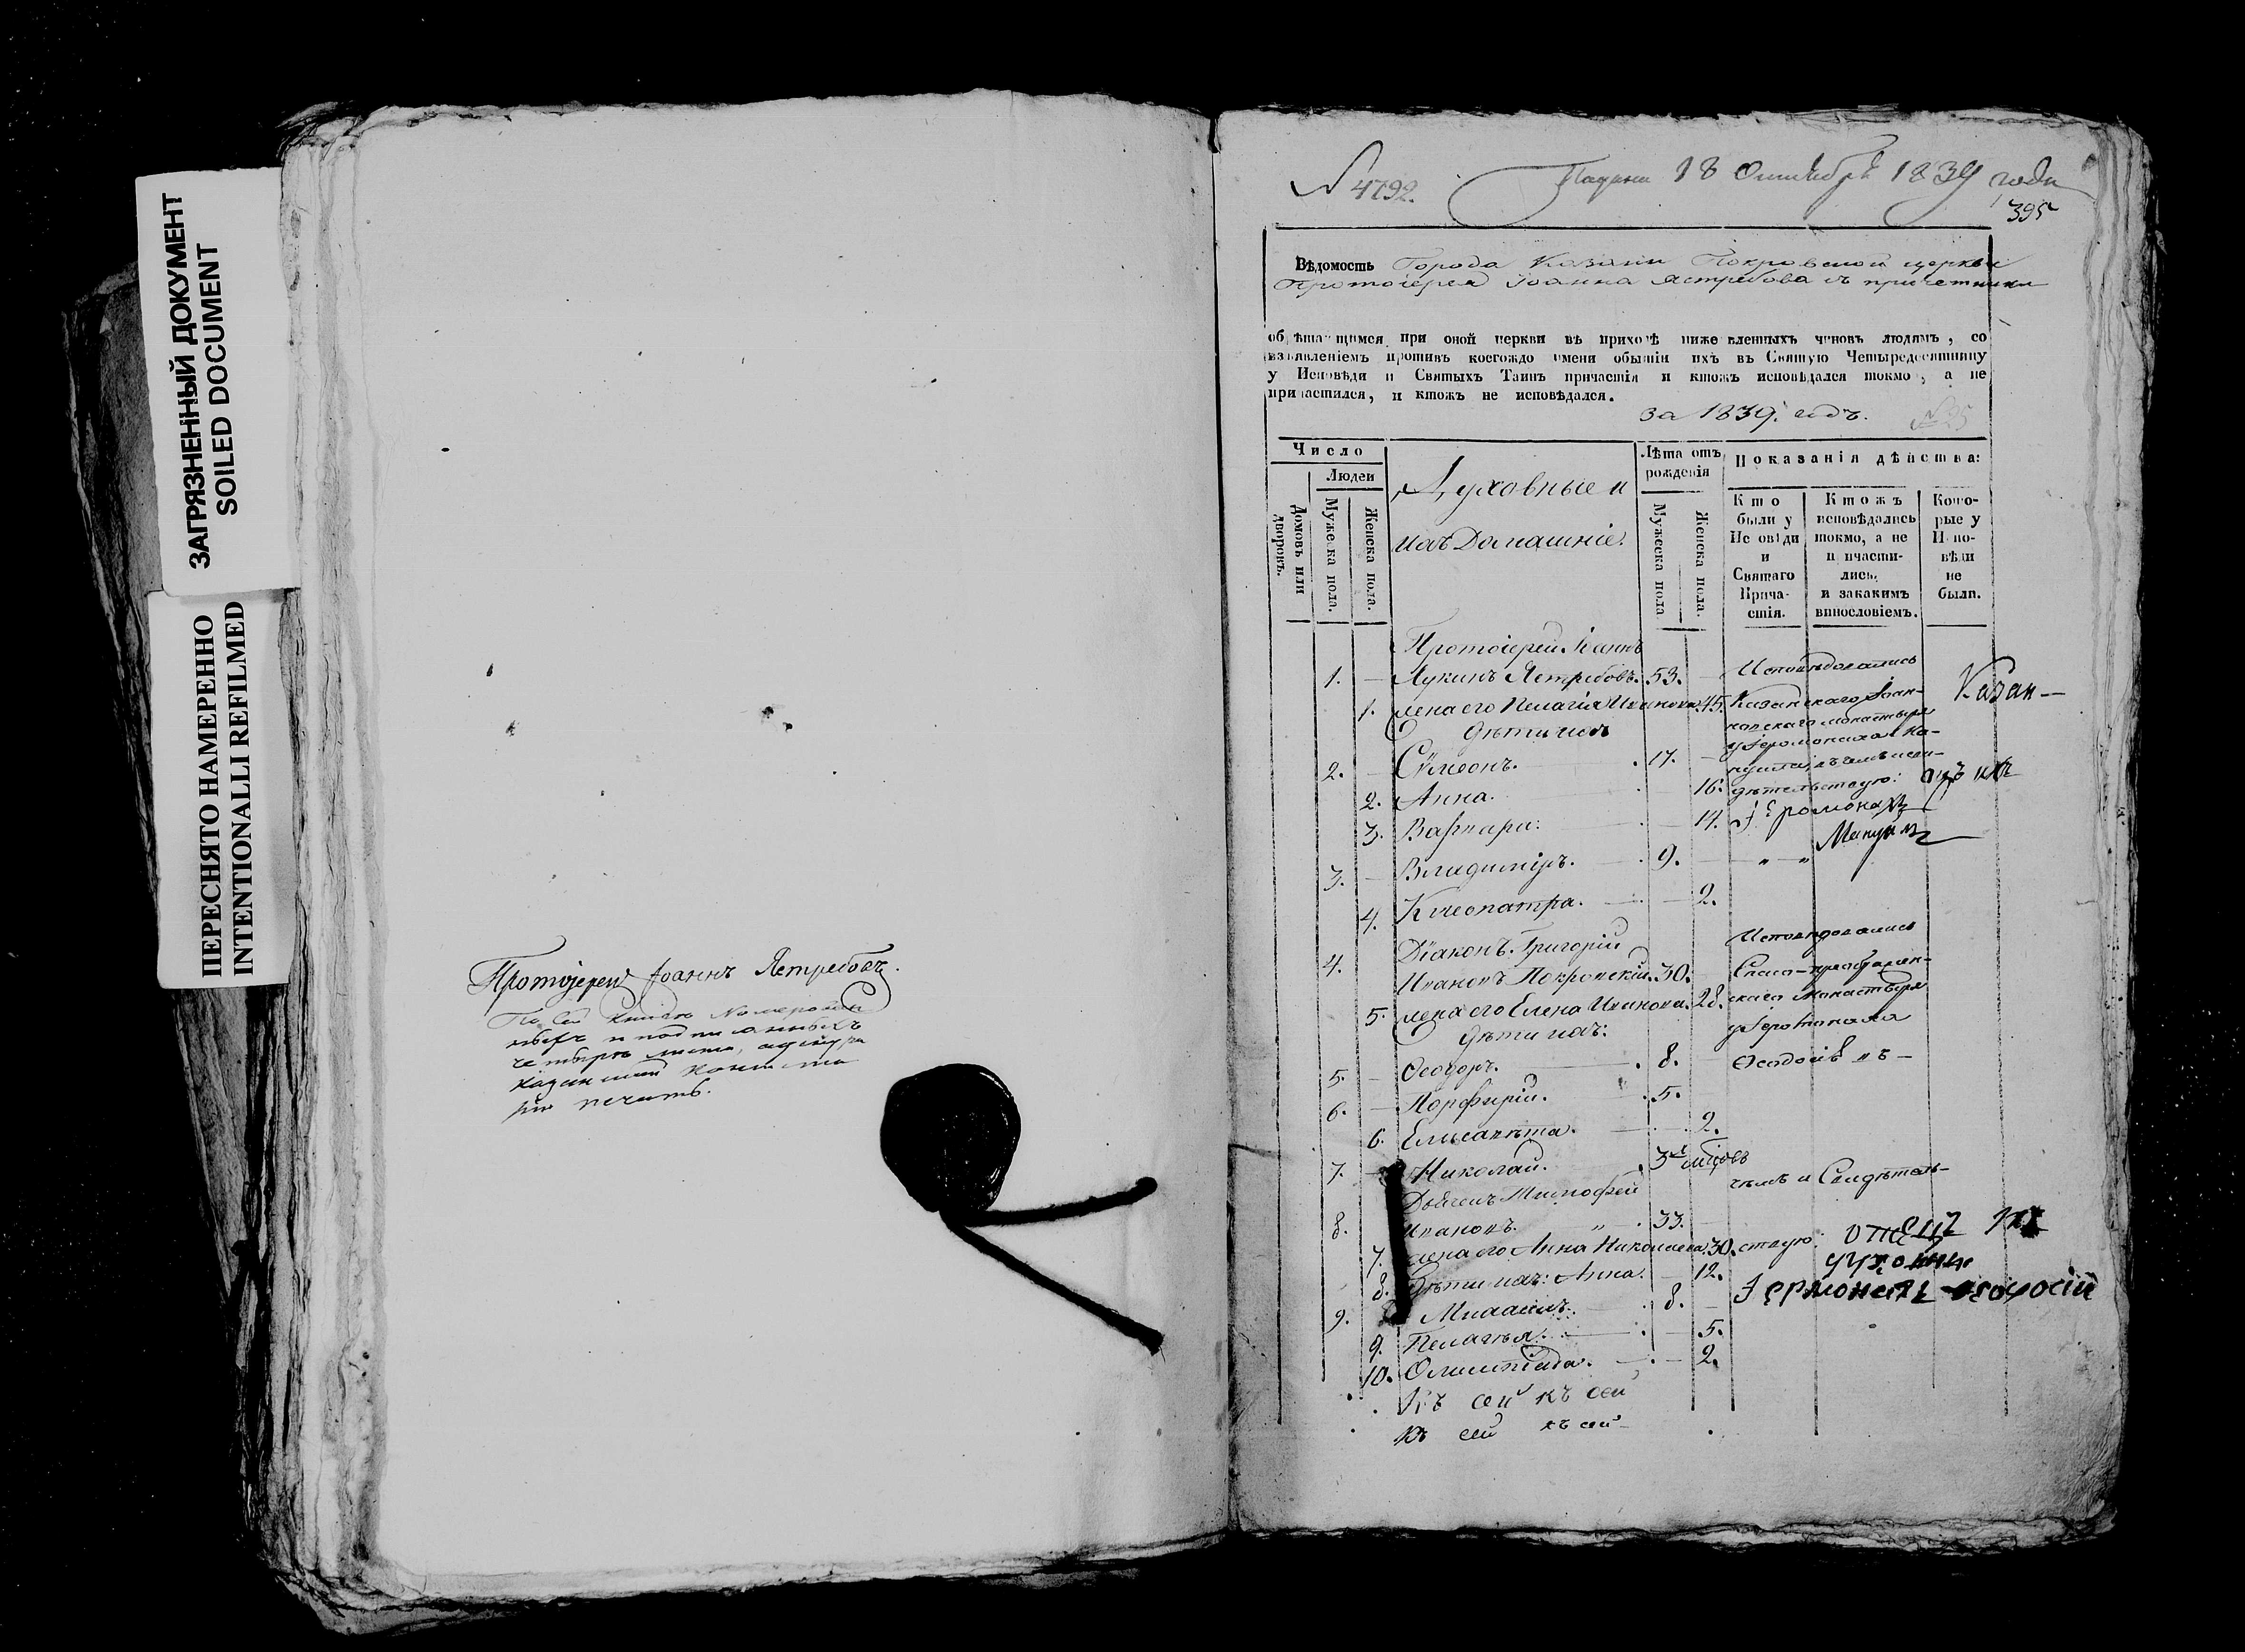 ЗАГРЯЗНЕННЫЙ ДОКУМЕНТ
SOILED DOCUMENT
ПЕРЕСНЯТО НАМЕРЕННО
INTENTIONALLI REFILMED
Протоіерей Іоаннъ Ястребовъ.
По сей книгѣ
и подписанныхъ
четыре листа,
печать.
№ 4792.
18 Октября 1839 года
395
Вѣдомость Города Казани Покровской церкви
Протоіерея Іоанна Ястребова съ причетники
обрѣтающимся при оной церкви въ приходѣ ниже вленныхъ чиновъ людямъ, со
изъявленіемъ противъ коегождо имени бытіи ихъ въ Святую Четыредесятницу
у Исповѣди и Святыхъ Таинъ причастія и ктожъ исповѣдался токмо, а не
причастился, и ктожъ не исповѣдался.
за 1839. годъ.
№ 25
Число
Людей
Домовъ или дворовъ.
Мужеска пола.
Женска пола.
Духовные и
ихъ Домашніе.
Лѣта отъ рожденія
Мужеска пола
Женска пола.
Показанія дѣйства:
Кто были у Исповѣди и Святаго Причастія.
Ктожъ исповѣдались токмо, а не причастились, и закакимъ винословіемъ.
Которые у Исповѣди не были.
Протоіерей Іоаннъ
1. Лукинъ Ястребовъ. 53. Исповѣдовались
1. жена его Пелагія Иванова. 45. Казанскаго Іоан-
Дѣти ихъ
новскаго монастыря
2. Сѵмеонъ. 17.
у Іеромонаха
2. Анна. 16.
3. Варвара: 14. Іеромонахъ
Казан-
3. Владиміръ. 9. " "
4. Клеопатра. 2.
Діаконъ Григорій Исповѣдовались
4. Ивановъ Покровскій. 30. Спасо-преображен-
5. жена его Елена Иванова. 28. скаго монастыря
Дѣти ихъ: у Іеромонаха
5. Ѳеодоръ. 8. Ѳеодосія въ-
6. Порфирій. 5.
6. Елисавѣта. 2.
7. Николай. 3хъ мѣцовъ
Дьячекъ Тимофей чемъ и Свидѣтель-
8. Ивановъ. " 33.
7. жена его Анна Николаева 30. ствую: отецъ ихъ
8. Дѣти ихъ: Анна. 12. духовный
9. Михаилъ. 8. Іермонахъ Ѳеодосій
9. Пелагея. 5.
10. Олимпіада. 2.
Къ сей къ сей
Къ сей къ сей